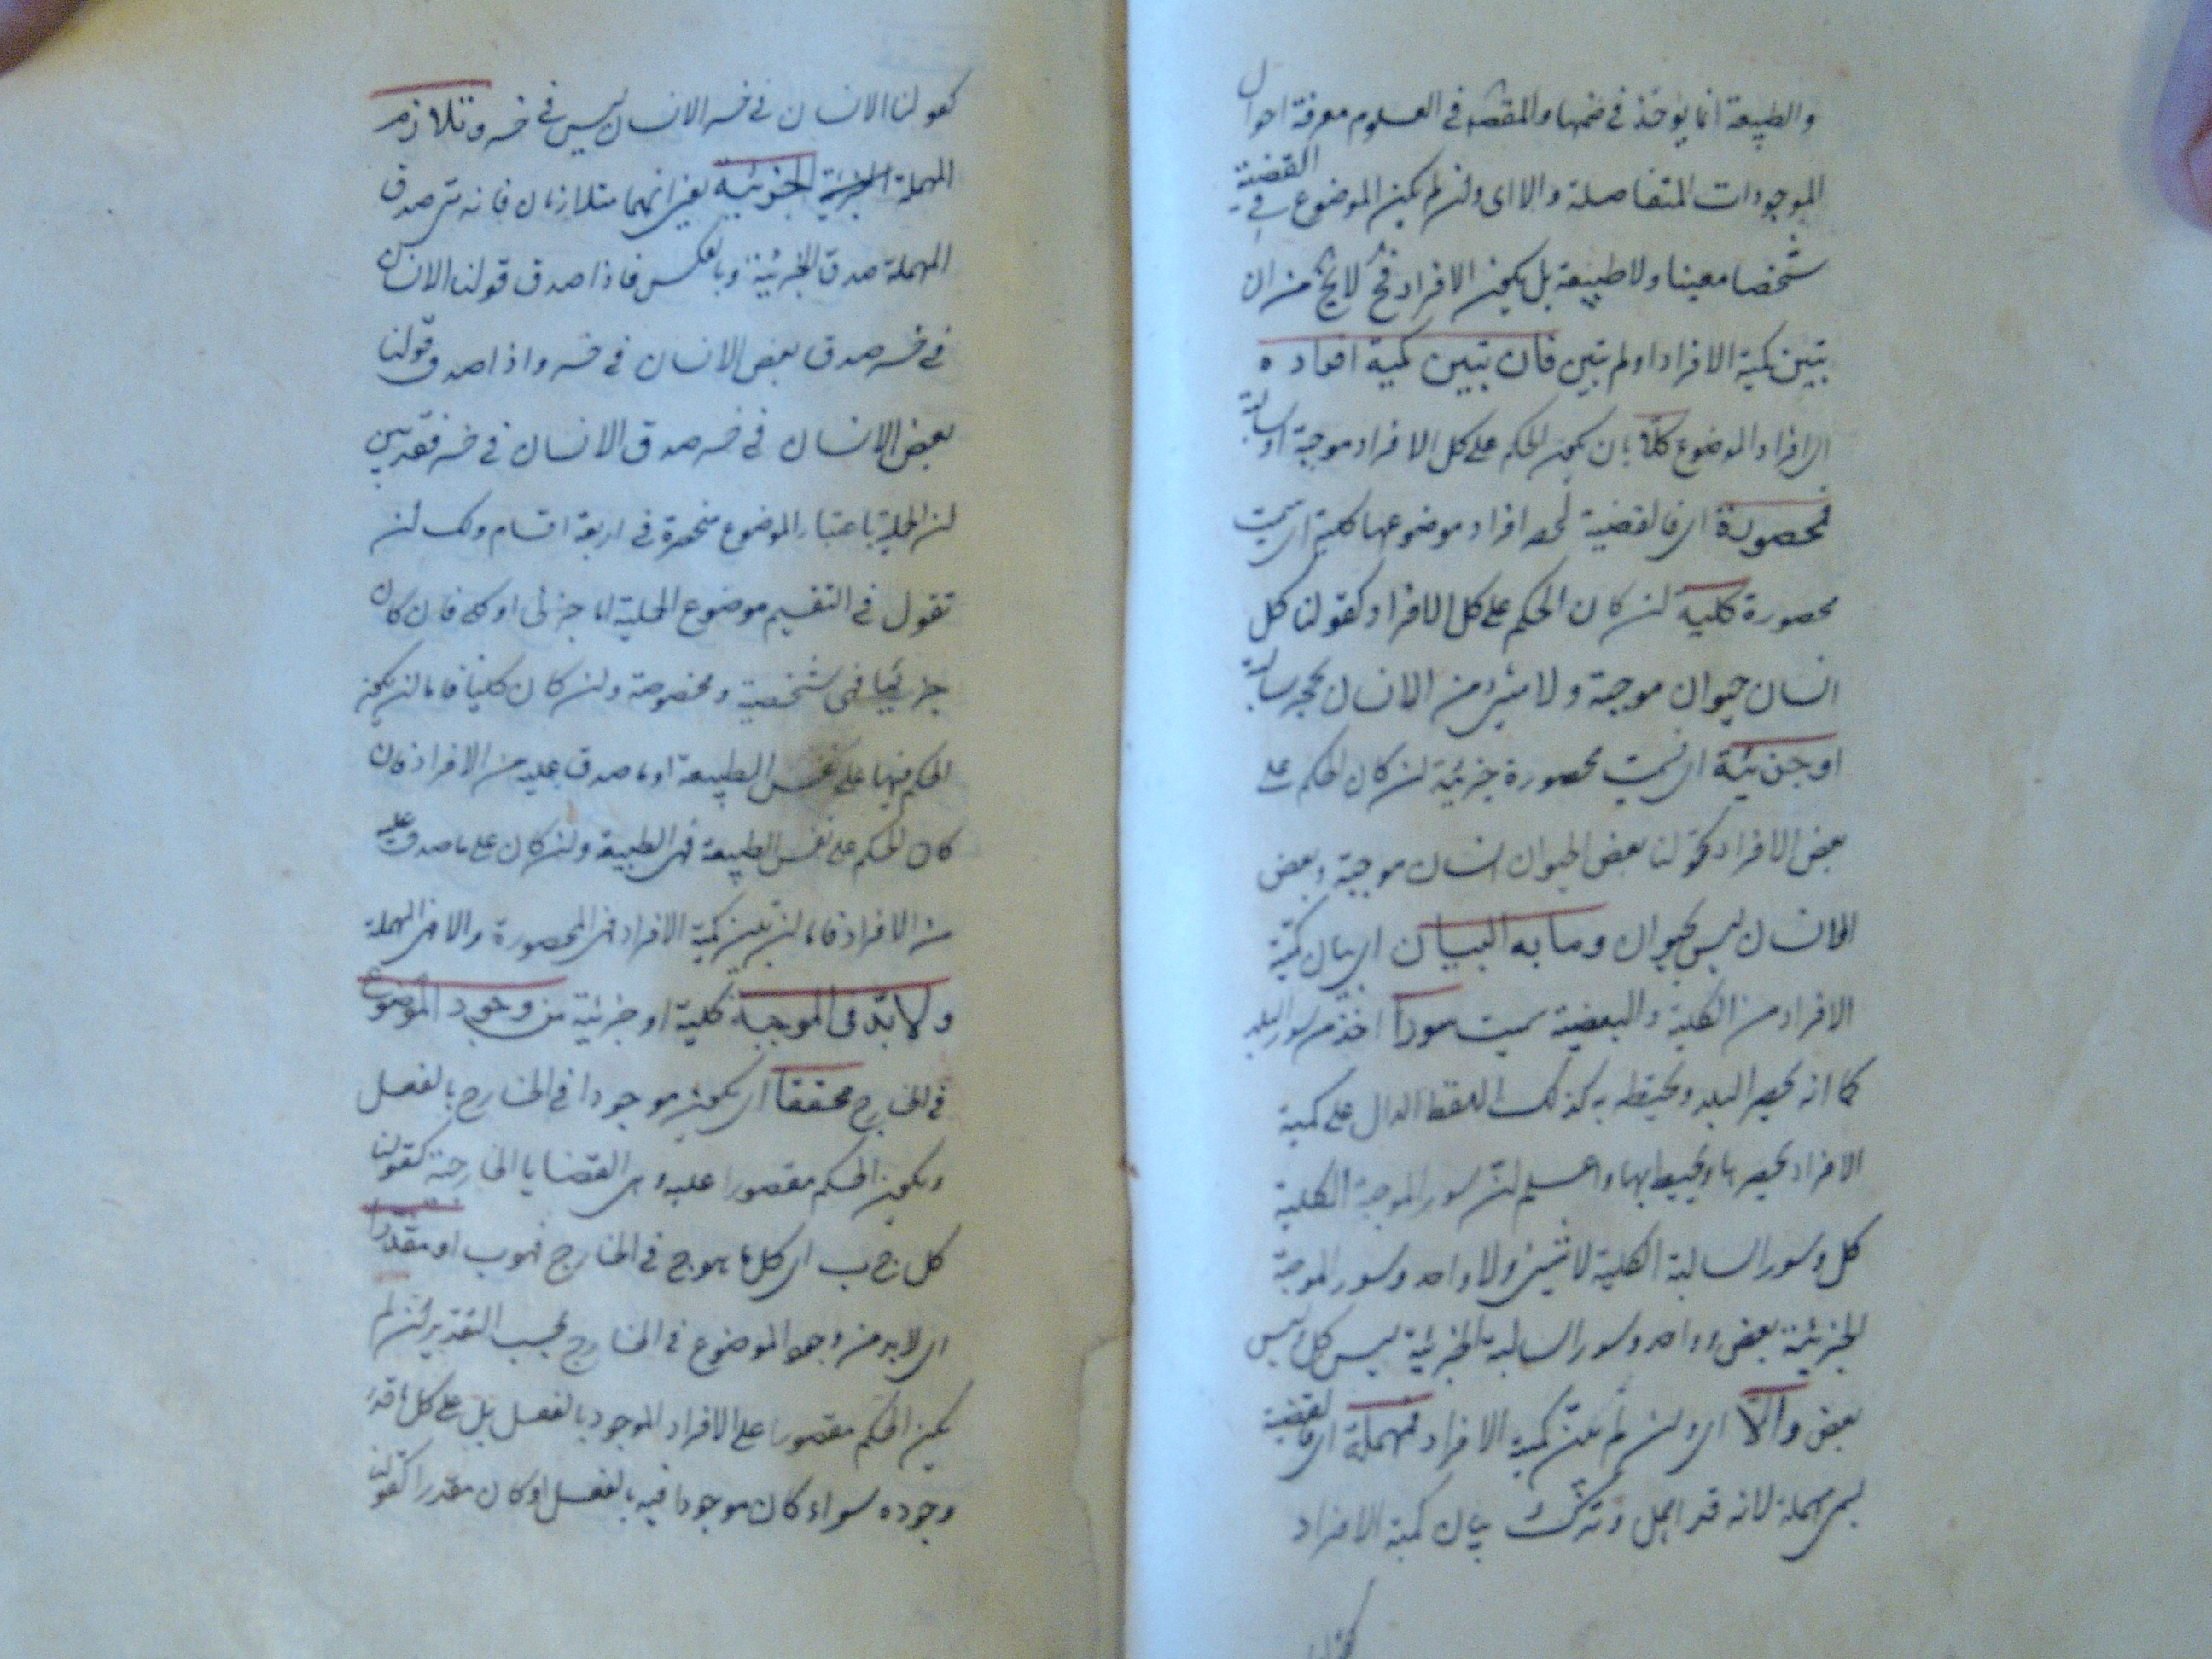 والطبيعة انما يؤخذ في ضمنها والمقصد في العلوم معرفة احوال
الموجودات المتفاصلة والا اى ولن لم يكن الموضوع في القضية
شخصا معينا ولا طبيعة بل يكون الافراد فح لا يخ من ان
تبين كمية الافراد او لم تبين فان تبين كمية افراده
اى افراد الموضوع كلا بان يكون الحكم على كل الافراد موجبة او سالبة
فمحصورة اى فالقضية لحصر افراد موضوعها كلية اى سميت
محصورة كلية لن كان الحكم على كل الافراد كقولنا كل
انسان حيوان موجبة ولا شئ من الانسان بحجر سالبة
او جزئية اى سميت محصورة جزئية لن كان الحكم على
بعض الافراد كقولنا بعض الحيوان انسان موجبة وبعض
الانسان ليس بحيوان وما به البيان اى بيان كمية
الافراد من الكلية والبعضية سميت سورا اخذ من سور البلد
كما انه يحصر البلد ويحيطه به كذلك اللفظ الدال على كمية
الافراد يحصرها ويحيط بها واعلم لن سور الموجبة الكلية
كل وسور السالبة الكلية لا شئ ولا واحد وسور الموجبة
الجزئية بعض وواحد وسور السالبة الجزئية ليس كل وليس
بعض والا اى ولن لم يبين كمية الافراد فمهملة اى فالقضية
يسمى مهملة لانه قد اهمل وترك بيان كمية الافراد
كقولنا
كقولنا الانسان في خسر الانسان ليس في خسر وتلازم
المهملة الجزئية يعنى انهما متلازمان فانه متى صدق
المهملة صدق الجزئية وبالعكس فاذا صدق قولنا الانسان
في خسر صدق بعض الانسان في خسر واذا صدق قولنا
بعض الانسان في خسر صدق الانسان في خسر فقد تبين
لن الحملية باعتبار الموضوع منحصرة في اربعة اقسام ولك لن
تقول في التقسيم موضوع الحملية اما جزئى او كلى فان كان
جزئيا فهى شخصية ومخصوصة ولن كان كليا فاما لن يكون
الحكم فيها على نفس الطبيعة او ما صدق عليه من الافراد فان
كان الحكم على نفس الطبيعة فهى الطبيعة ولن كان على ما صدق عليه
من الافراد فاما لن بين كمية الافراد فهى المحصورة والا فهى المهملة
ولا بد فى الموجبة كلية او جزئية من وجود الموضوع
في الخارج محققا اى يكون موجودا في الخارج بالفعل
ويكون الحكم مقصورا عليه وهى القضايا الخارجية كقولنا
كل ج ب اى كل ما هو ج في الخارج فهو ب او مقدرا
اى لا بد من وجود الموضوع في الخارج بحسب التقدير لن لم
يكن الحكم مقصورا على الافراد الموجود بالفعل بل على كل ما قدر
وجوده سواء كان موجودا فيه بالفعل او كان مقدرا كقولنا